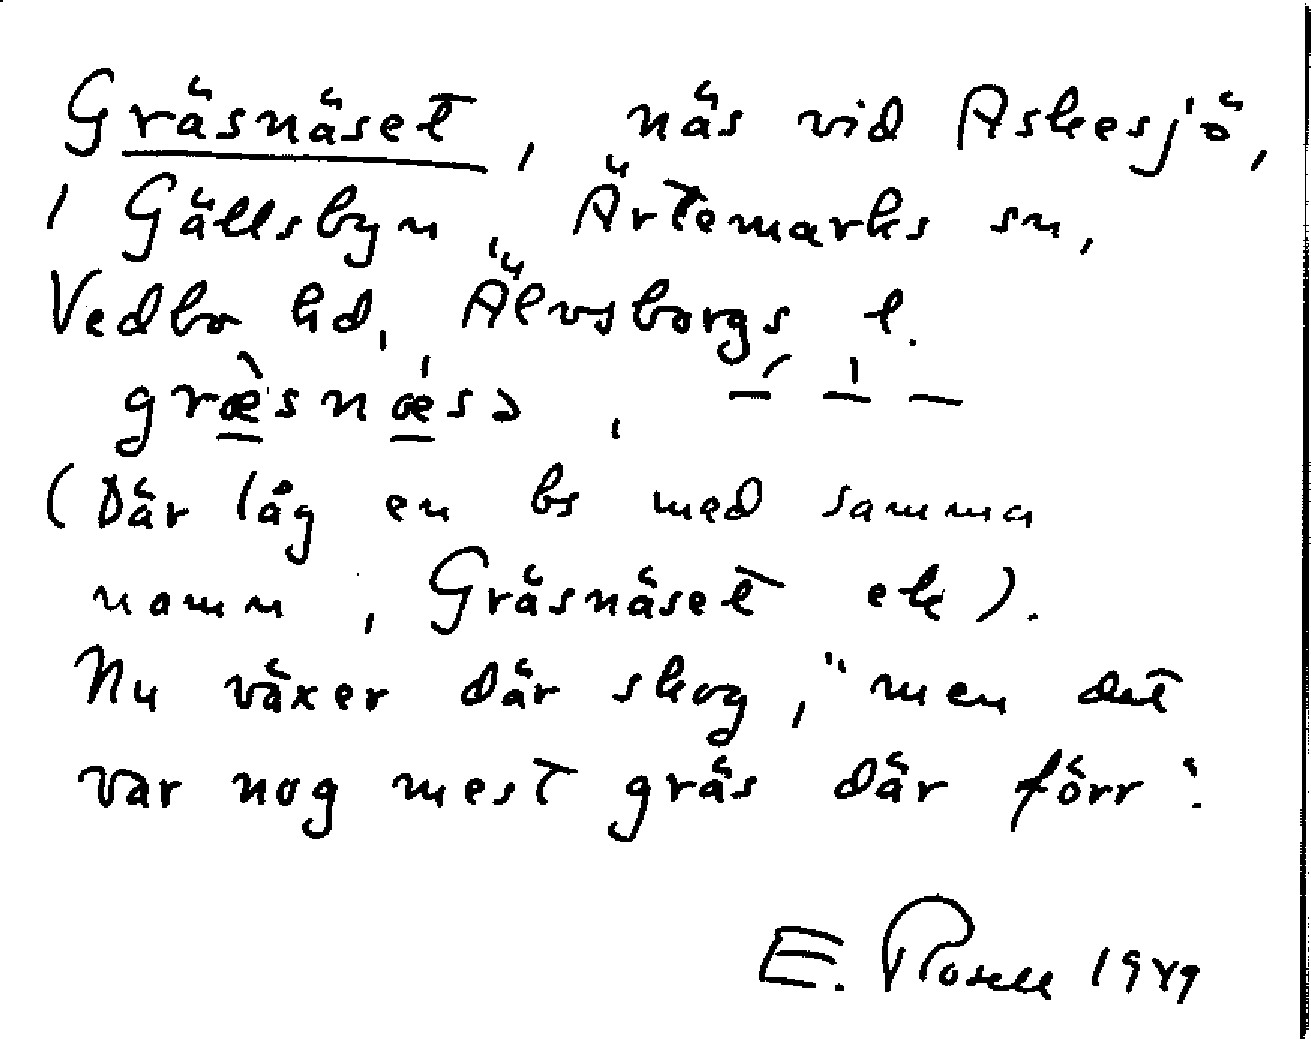 Gräsnäset, näs vid Askesjö,
i Gällsbyn, Ärtemarks sn,
Vedbo hd, Älvsborgs l.
græ̀snǽsɔ,
(Där låg en bs med samma
namn, Gräsnäset etc).
Nu växer där skog, "men det
var nog mest gräs där förr".
E. Rosell 1949